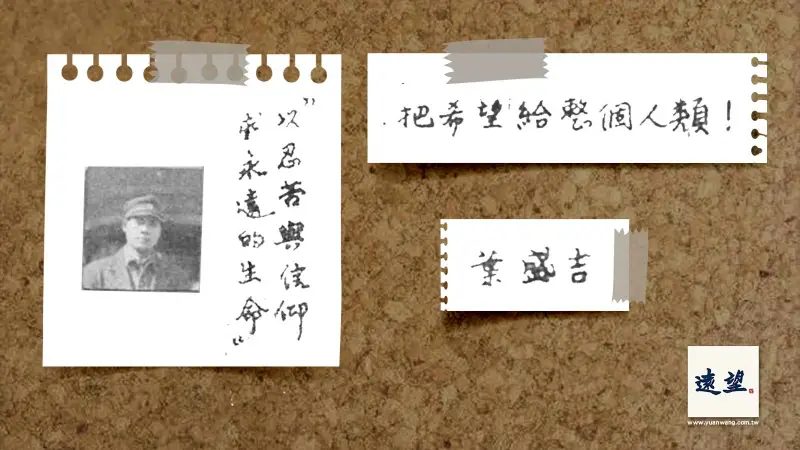 "以忍苦與信仰
求永遠的生命"
把希望給整個人類！
葉盛吉
遠望
www.yuanwang.com.tw